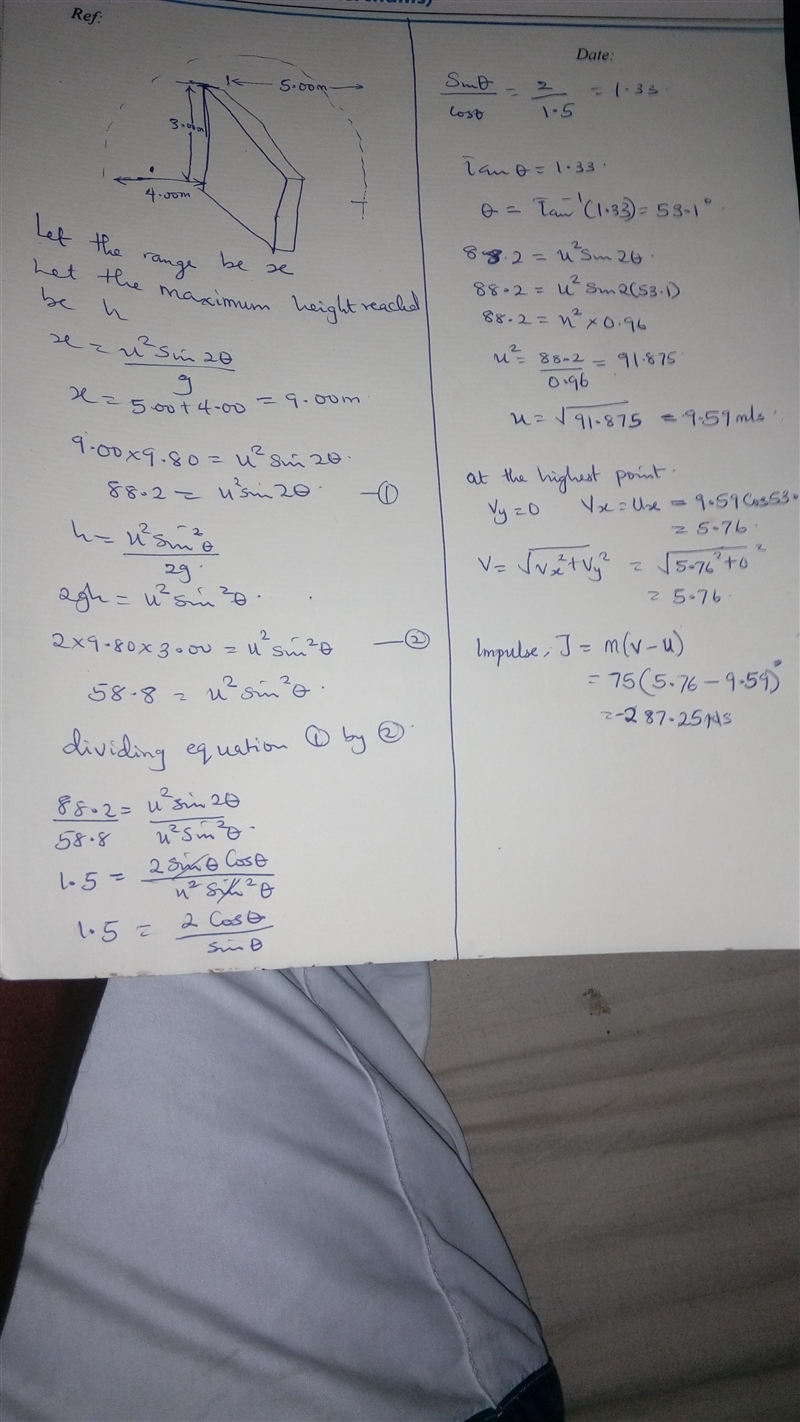 Ref:
5.00m
3.00m
4.00m
Let the range be x
Let the maximum height reached
be h
x = u²Sin 2θ / g
x = 5.00 + 4.00 = 9.00m
9.00 × 9.80 = u²sin 2θ.
88.2 = u²sin 2θ. —①
h = u²Sin²θ / 2g.
2gh = u²sin²θ.
2×9.80×3.00 = u²sin²θ —②
58.8 = u²sin²θ.
dividing equation ① by ②.
88.2 / 58.8 = u²sin 2θ / u²sin²θ.
1.5 = 2 sinθ Cosθ / u² sin²θ
1.5 = 2 Cosθ / sinθ
Date:
Sinθ / Cosθ = 2 / 1.5 = 1.33.
Tan θ = 1.33.
θ = Tan⁻¹(1.33) = 53.1°.
88.2 = u²Sin2θ.
88.2 = u² Sin2(53.1)
88.2 = u² × 0.96
u² = 88.2 / 0.96 = 91.875.
u = √91.875 = 9.59 m/s.
at the highest point.
Vy = 0 Vx = Ux = 9.59 Cos53.
= 5.76.
V = √Vx² + Vy² = √5.76² + 0²
= 5.76.
Impulse, J = m(v – u)
= 75(5.76 – 9.59)
= –287.25Ns